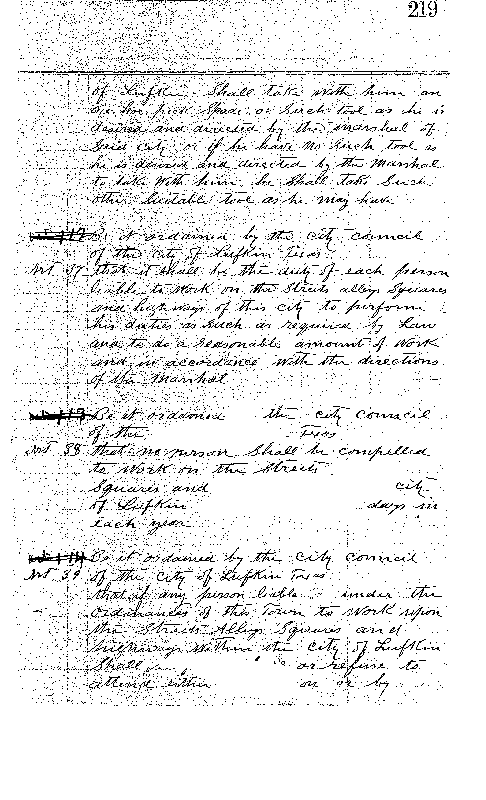 219
of Lufkin Shall take with him an
ax hoe pick Spade or Such tool as he is
desired and directed by the marshal of
Said city or if he have no Such tool as
he is desired and directed by the Marshal
to take with him he Shall take Such
other Suitable tool as he may have
Be it ordained by the city council
of the city of Lufkin Texas
Art 37 that it shall be the duty of each person
liable to work on the Streets alleys Squares
and highways of this city to perform
his duties as Such as required by Law
and to do a reasonable amount of Work
and in accordance with the directions
of the Marshal
Be it ordained the city council
of the Texas
Art 38 that no person Shall be compelled
to work on the Streets
Squares and city
of Lufkin days in
each year
Be it ordained by the city council
Art 39 of the city of Lufkin Texas
that if any person liable under the
Ordinances of this Town to Work upon
the Streets Alleys Squares and
highways within the city of Lufkin
Shall or refuse to
attend either on or by